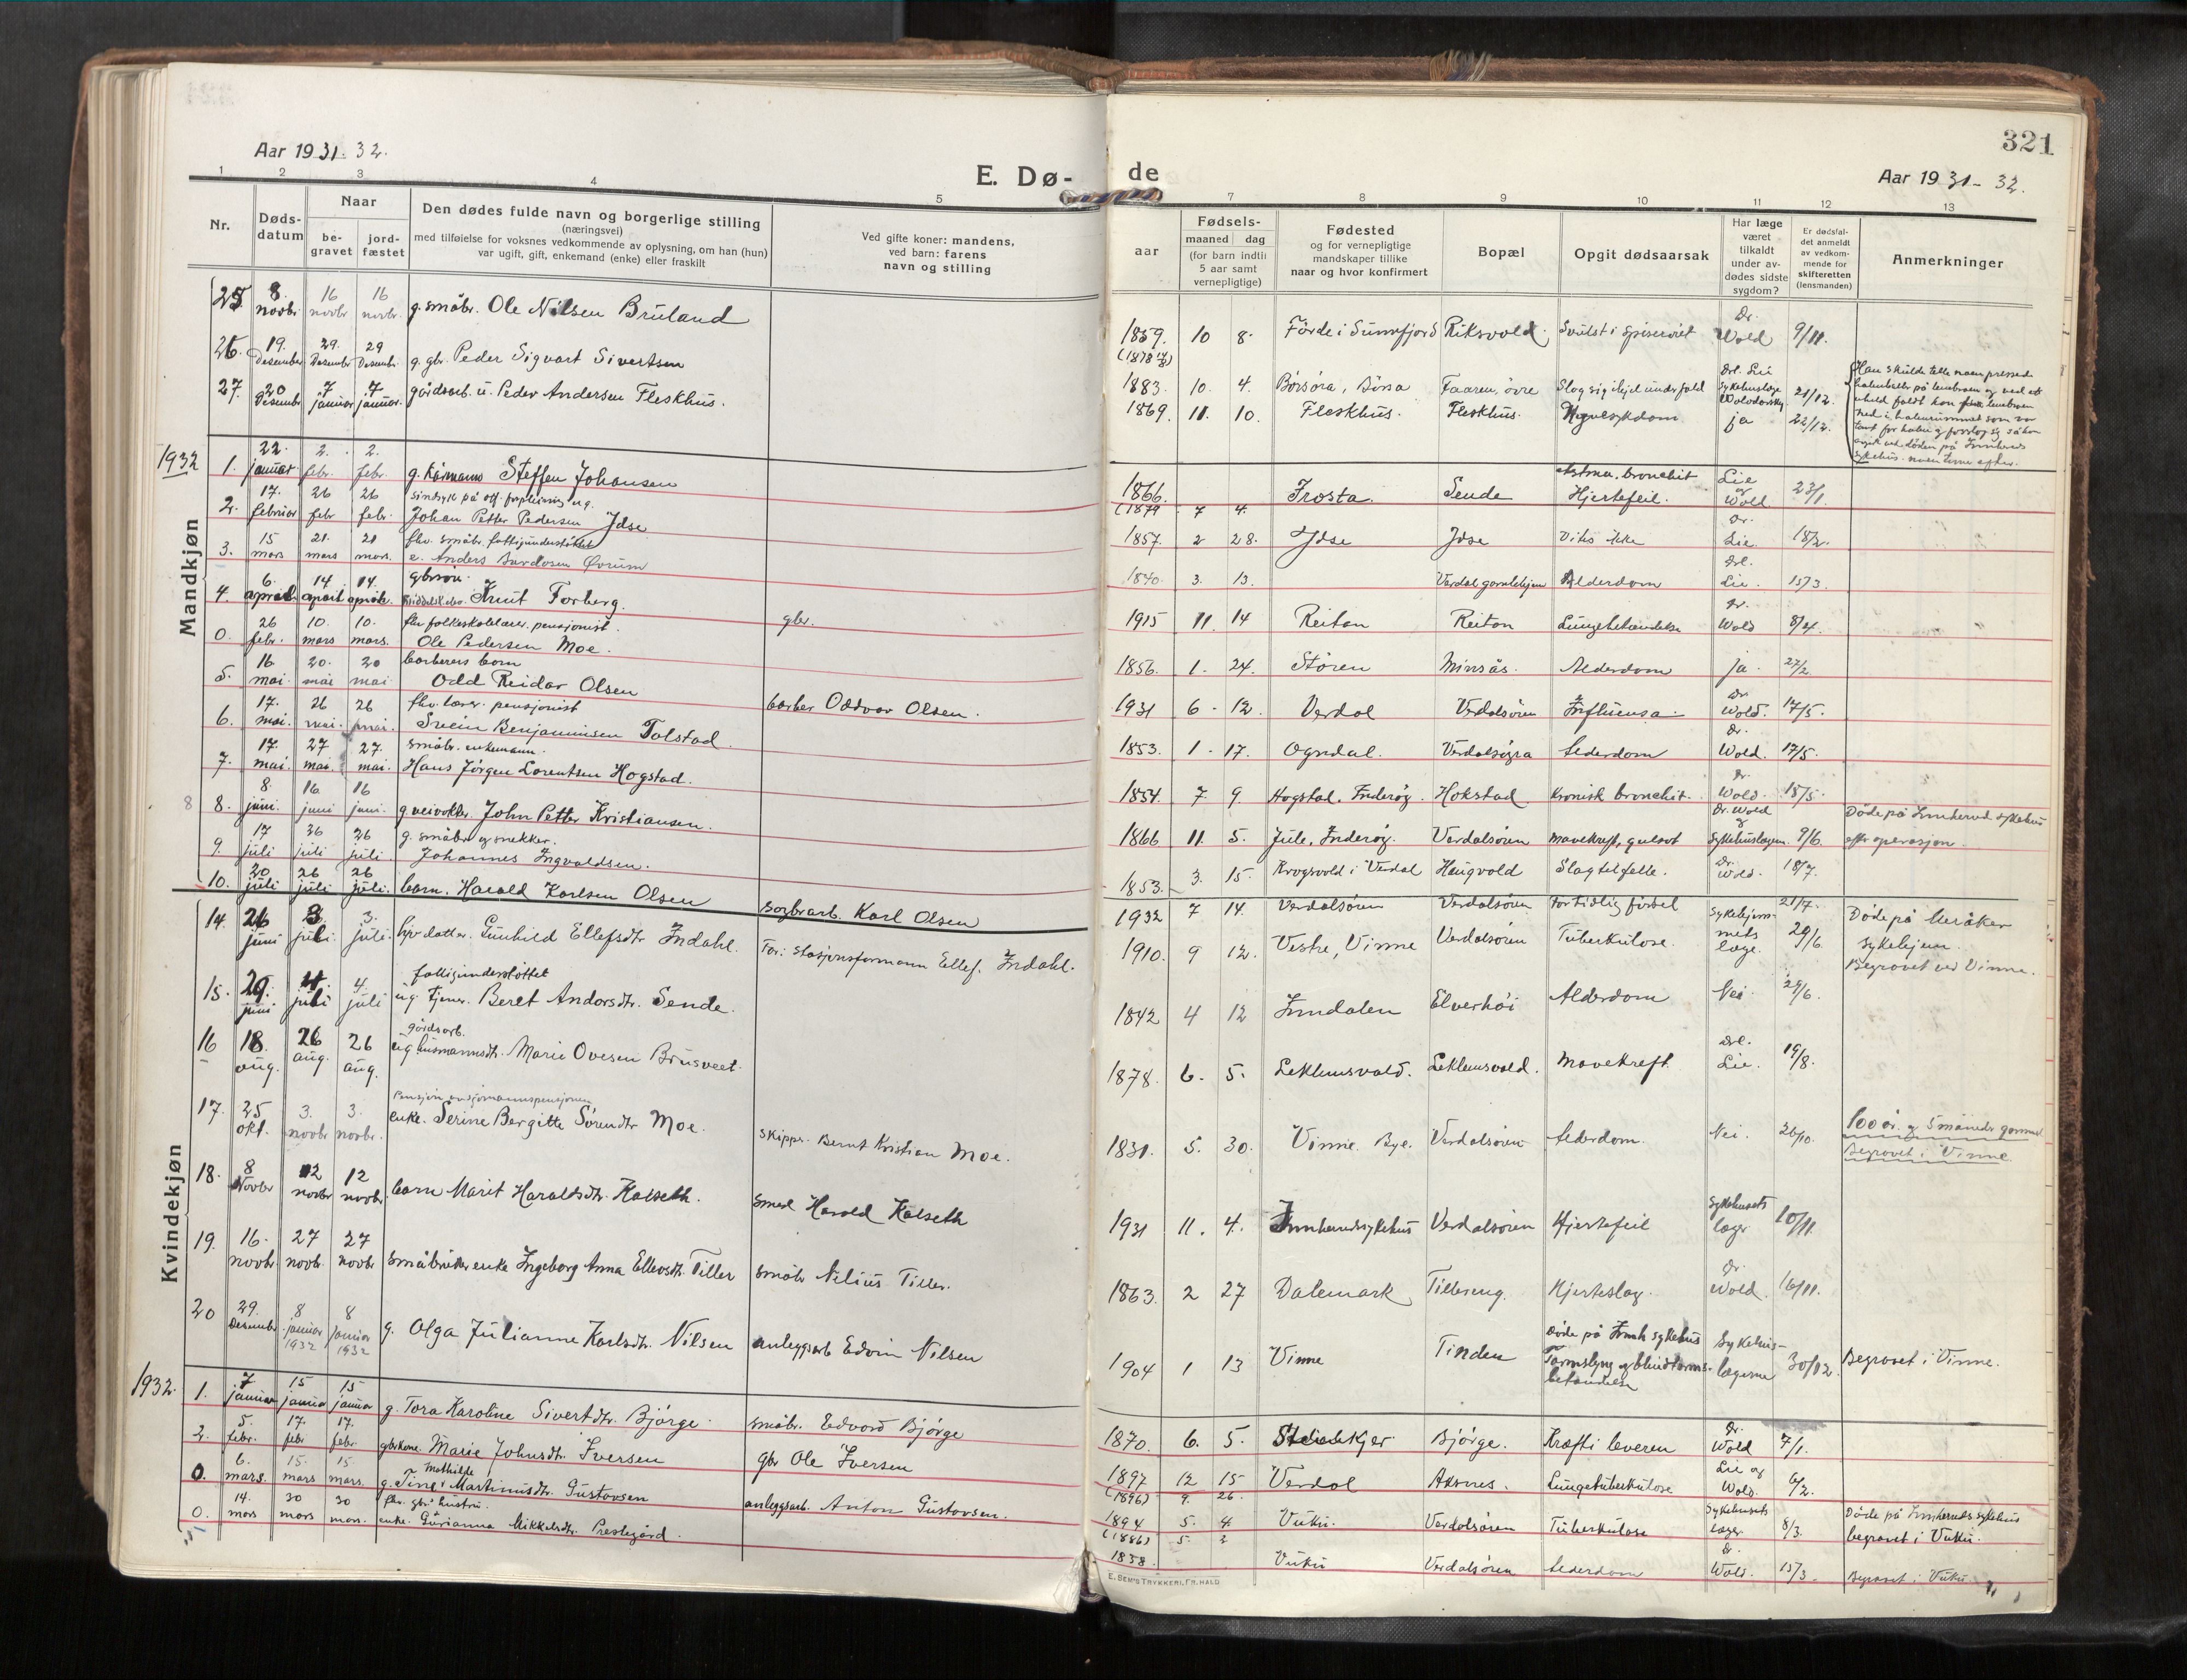 Aar 1931-32.
E. Dø-
1 2 3 4 5
Nr.
Døds-
datum
Naar
be-
gravet
jord-
fæstet
Den dødes fulde navn og borgerlige stilling
(næringsvei)
med tilføielse for voksnes vedkommende av oplysning, om han (hun)
var ugift, gift, enkemand (enke) eller fraskilt
Ved gifte koner: mandens,
ved barn: farens
navn og stilling
25 8. novbr. 16 novbr 16 novbr. g. småbr. Ole Nilsen Bruland
26. 19. Desember 29. Desember 29 Desembr. g. gbr. Peder Sigvart Sivertsen
27. 20 Desembr 7 januar 7 januar. gårdsarb. u. Peder Andersen Fleskhus.
1932
Mandkjøn
1. 22. januar 2. febr. 2. febr g. Steffen Johansen
2. 17. februar 26 febr 26 febr. sindsyk på off. forpleining ug.
Johan Petter Pedersen Ydse
3. 15 mars 21. mars 21 mars. fhv. småbr. fattigunderstöttet
e. Anders Øvrum
4. 6. april 14 april 14. april gbrsön.
Knut Forberg. gbr.
0. 26 febr. 10. mars 10. mars. fhv folkeskolelærer, pensjonist.
Ole Pedersen Moe.
5. 16 mai 20. mai 20 mai barberers barn
Odd Reidar Olsen barber Oddvar Olsen.
6. 17. mai. 26 mai. 26 mai. fhv. lærer. pensjonist
Svein Benjaminsen Tolstad.
7. 17. mai 27 mai. 27. mai. småbr. enkemann.
Hans Jörgen Lorentsen Hogstad.
8 8. 8. juni. 16 juni 16 juni. g. veivokter. John Petter Kristiansen.
9. 17 juli 26 juli 26 juli. g. småbr og snekker.
Johannes Ingvaldsen.
10. 20 juli 26 juli 26 juli. barn. Harald Karlsen Olsen Karl Olsen
Kvindekjøn
14. 26 juni 3 juli 3. juli. datter. Gunhild Ellefsdtr Indahl. Far: stasjonsformann Ellef. Indahl.
15. 29. juni 4. juli 4. juli fattigunderstöttet
ug tjener. Beret Andorsdtr. Sende.
16 18. aug. 26 aug. 26 aug. gårdsarb.
ug husmannsdtr. Marie Ovesen Brusveet.
17. 25 okt. 3. novbr 3. novbr. enke. Serine Bergitte Sörensdtr Moe. Skippr. Bernt Kristian Moe.
18. 8 Novbr 12 novbr 12 novbr. barn Marit Haraldsdtr. Kalseth. smed Harald Kalseth
19. 16. novbr 27 novbr. 27 novbr småbrukerenke Ingeborg Anna Ellevsdtr. Tiller småbr Nelius Tiller.
20 29. Desember 8 januar 1932 8 januar 1932 g. Olga Julianne Karlsdtr. Nilsen anleggsarb Edvin Nilsen
1932.
1. 7 januar 15 januar 15 januar g. Tora Karoline Sivertdtr. Björge småbr. Edvard Björge
2. 5. febr. 17. febr 17. febr gbrkone. Marie Johnsdtr. Iversen gbr Ole Iversen
0. 6. mars. 15. mars 15 mars. g. Tine Mathilde Martinusdtr. Gustavsen anleggsarb. Anton Gustavsen.
0. 14. mars 30 mars 30 mars. fhv. gbr. hustru.
enke. Gurianna Mikkelsdtr. Prestegård.
321
de
Aar 1931-32.
7 8 9 10 11 12 13
aar
Fødsels-
maaned dag
(for barn indtil
5 aar samt
vernepligtige)
Fødested
og for vernepligtige
mandskaper tillike
naar og hvor konfirmert
Bopæl
Opgit dødsaarsak
Har læge
været
tilkaldt
under av-
dødes sidste
sygdom?
Er dødsfal-
det anmeldt
av vedkom-
mende for
skifteretten
(lensmanden)
Anmerkninger
1859. 10 8. Förde i Sunnfjord Riksvold. Svulst i spiserøret Dr. Wold 9/11.
1883. 10. 4. Börsöra, Börsa Faaren, övre Slog sig ihjel under fald Drl. Lie Sykehuslæge 21/12.
1869. 11. 10. Fleskhus. Fleskhus. Nyresykdom ja 22/12.
1866. Frosta. Sende Astma, bronchit Hjertefeil. Lie og Wold. 23/1.
(1879 7 4.
1857. 2 28. Ydse Ydse Vites ikke Dr. Lie. 18/2.
1840. 3. 13. Verdal gamlehjem Alderdom Drl. Lie. 15/3
1915 11. 14 Reitan Reitan Lungebetændelse Dr. Wold 8/4.
1856. 1. 24. Stören Minsås. Alderdom ja. 27/2.
1931 6. 12. Verdal Verdalsören Influensa. Dr. Wold. 17/5.
1853. 1. 17. Ogndal. Verdalsöra Alderdom Dr. Wold. 17/5.
1854. 7 9. Hogstad, Inderöy. Hokstad. Kronisk bronchit. Dr. Wold. 18/5.
1866 11. 5. Jule, Inderöy. Verdalsören Mavekreft, gulsot Dr. Wold og Sykehuslægen 9/6. Döde på Innherred sykehus
efter operasjon.
1853. 3. 15. Krogsvold i Verdal Haugvold Slagtilfelle. Dr. Wold. 18/7.
1932 7 14. Verdalsören Verdalsören For tidlig födsel 21/7.
1910. 9 12. Vestre, Vinne Verdalsören Tuberkulose. Sykehjemmets læge. 29/6. Döde på Meråker
sykehjem.
Begravet ved Vinne.
1842 4 12 Inndalen Elverhöi Alderdom Nei. 29/6.
1878. 6. 5. Leklemsvald. Leklemsvald. Mavekreft. Drl. Lie. 19/8.
1831. 5. 30. Vinne. Bye. Verdalsören Alderdom. Nei. 26/10. 100 år og 5 måneder gammel
Begravet i Vinne.
1931 11. 4. Innherredssykehus Verdalsören Hjertefeil Sykehusets læger 10/11.
1863. 2 27 Dalemark Tillereng. Hjerteslag. Dr. Wold. 16/11.
1904 1 13 Vinne Tinden Döde på Innh sykehus
Tarmslyng og blindtarms-
betændelse Sykehus-
lægerne 30/12. Begravet i Vinne.
1870. 6. 5. Steinkjer Björge. Kreft i leveren Dr. Wold 7/1.
1897 12 15 Verdal Aksnes. Lungetuberkulose Lie og Wold. 6/2.
(1896) 9. 26.
1894 5. 4. Vuku. Verdalsören Tuberkulose Sykehusets læger. 8/3. Döde på Innherreds sykehus
begravet i Vuku.
(1886) 5. 2
1838. Vuku Verdalsören Alderdom Dr. Wold. 15/3. Begravet i Vuku.
E. SEM'S TRYKKERI, FR.HALD